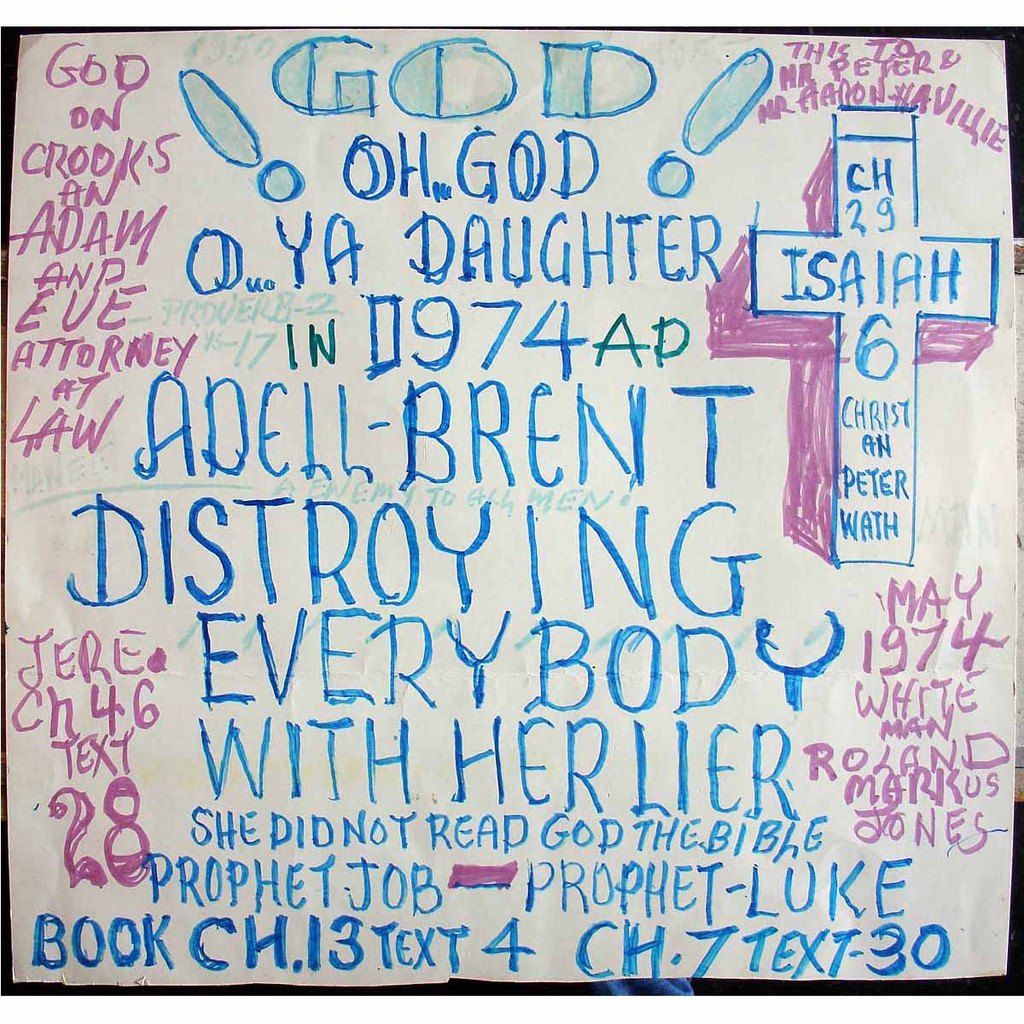 GOD
OH...GOD
O...YA DAUGHTER
IN 1974 AD
ADELL-BRENT
DISTROYING
EVERYBODY
WITH HER LIER
SHE DID NOT READ GOD THE.BIBLE
PROPHET.JOB — PROPHET-LUKE
BOOK CH.13 TEXT 4 CH.7 TEXT-30
GOD
ON
CROOKS
AN
ADAM
AND
EVE
ATTORNEY
AT
LAW
PROVERB-2
17
A ENEMY TO ALL MEN.
JERE.
Ch 46
TEXT
28
THIS TO
MR PETER &
MR AARON
CH
29
ISAIAH
6
CHRIST
AN
PETER
WATH
MAN
MAY
1974
WHITE
MAN
ROLAND
MARKUS
JONES